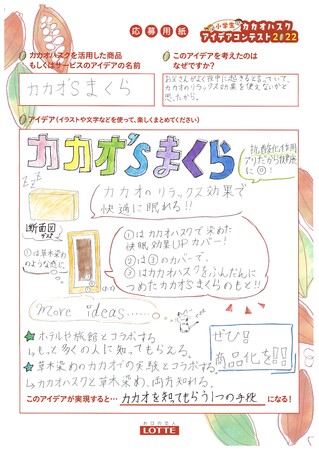 応募用紙
小学生 カカオハスク
アイデアコンテスト2022
カカオハスクを活用した商品
もしくはサービスのアイデアの名前
カカオ'sまくら
このアイデアを考えたのは
なぜですか?
お父さんがよく夜中に起きると言っていて、
カカオのリラックス効果を使えないかと
思ったから。
アイデア(イラストや文字などを使って、楽しくまとめてください)
カカオ'sまくら
抗酸化作用
アリだから快適
に◎!
zzz
カカオのリラックス効果で
快適に眠れる!!
断面図
①は草木染め
のような感じ。
①はカカオハスクで染めた
快眠効果UPカバー!
②は③のカバーで、
③はカカオハスクをふんだんに
つめたカカオ'sまくらのもと!!
more ideas......
★ホテルや旅館とコラボする。
↳もっと多くの人に知ってもらえる。
★草木染めのカカオでの実験とコラボする。
↳カカオハスクと草木染め、両方知れる。
ぜひ!
商品化を!!
このアイデアが実現すると… カカオを知ってもらう1つの手段 になる!
お口の恋人
LOTTE